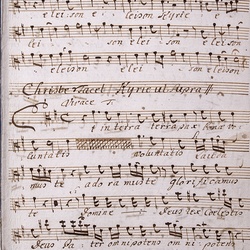 eleison Kyrie e
lei son e lei son e lei
son eleison e lei son
Christe tacet Kyrie ut supra
Vivace
e in terra terra pax
luntatis voluntatis
mus te ado ramus te glorificamus
te Domine Deus Rex Coelestis
Deus Pa ter omnipotens omnipotens